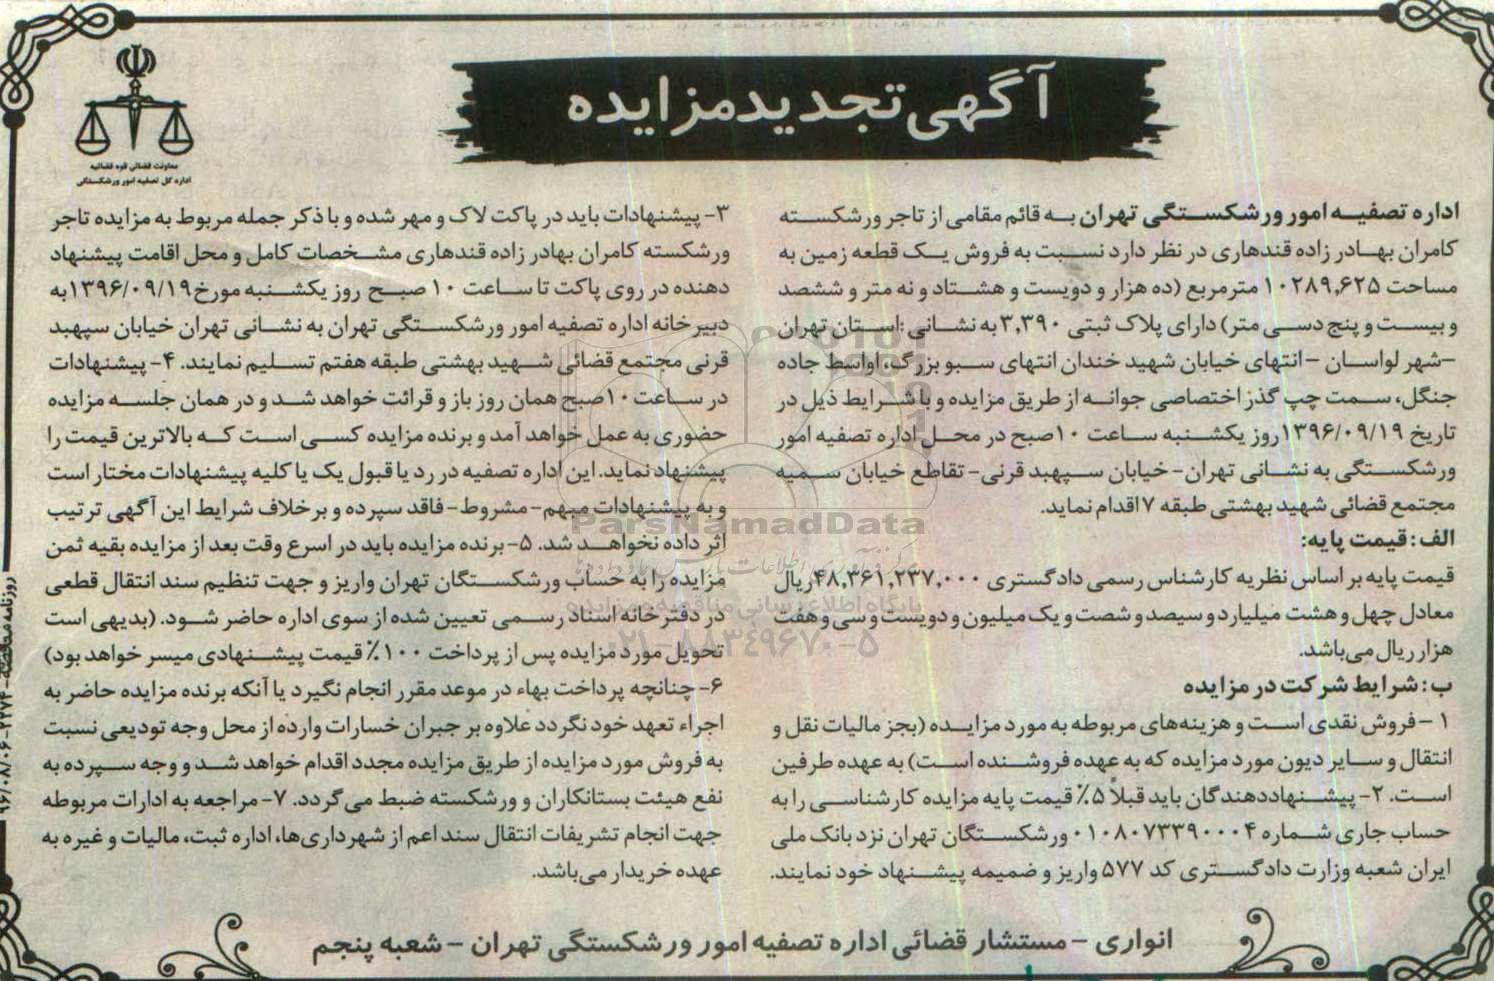 آگهی تجدید مزایده
معاونت قضائی قوه قضائیه
اداره کل تصفیه امور ورشکستگی
اداره تصفیه امور ورشکستگی تهران به قائم مقامی از تاجر ورشکسته
کامران بهادر زاده قندهاری در نظر دارد نسبت به فروش یک قطعه زمین به
مساحت ۱۰۲۸۹,۶۲۵ مترمربع (ده هزار و دویست و هشتاد و نه متر و ششصد
و بیست و پنج دسی متر) دارای پلاک ثبتی ۳,۳۹۰ به نشانی :استان تهران
–شهر لواسان –انتهای خیابان شهید خندان انتهای سبو بزرگ، اواسط جاده
جنگل، سمت چپ گذر اختصاصی جوانه از طریق مزایده و با شرایط ذیل در
تاریخ ۱۳۹۶/۰۹/۱۹ روز یکشنبه ساعت ۱۰صبح در محل اداره تصفیه امور
ورشکستگی به نشانی تهران- خیابان سپهبد قرنی- تقاطع خیابان سمیه
مجتمع قضائی شهید بهشتی طبقه ۷ اقدام نماید.
الف : قیمت پایه:
قیمت پایه بر اساس نظریه کارشناس رسمی دادگستری ۴۸,۳۶۱,۲۳۷,۰۰۰ ریال
معادل چهل و هشت میلیارد و سیصد و شصت و یک میلیون و دویست و سی و هفت
هزار ریال می‌باشد.
ب : شرایط شرکت در مزایده
۱ –فروش نقدی است و هزینه‌های مربوطه به مورد مزایده (بجز مالیات نقل و
انتقال و سایر دیون مورد مزایده که به عهده فروشنده است) به عهده طرفین
است. ۲- پیشنهاددهندگان باید قبلاً ۵٪ قیمت پایه مزایده کارشناسی را به
حساب جاری شماره ۰۱۰۸۰۷۳۳۹۰۰۰۴ ورشکستگان تهران نزد بانک ملی
ایران شعبه وزارت دادگستری کد ۵۷۷ واریز و ضمیمه پیشنهاد خود نمایند.
۳- پیشنهادات باید در پاکت لاک و مهر شده و با ذکر جمله مربوط به مزایده تاجر
ورشکسته کامران بهادر زاده قندهاری مشخصات کامل و محل اقامت پیشنهاد
دهنده در روی پاکت تا ساعت ۱۰ صبح روز یکشنبه مورخ ۱۳۹۶/۰۹/۱۹ به
دبیرخانه اداره تصفیه امور ورشکستگی تهران به نشانی تهران خیابان سپهبد
قرنی مجتمع قضائی شهید بهشتی طبقه هفتم تسلیم نمایند. ۴- پیشنهادات
در ساعت ۱۰صبح همان روز باز و قرائت خواهد شد و در همان جلسه مزایده
حضوری به عمل خواهد آمد و برنده مزایده کسی است که بالاترین قیمت را
پیشنهاد نماید. این اداره تصفیه در رد یا قبول یک یا کلیه پیشنهادات مختار است
و به پیشنهادات مبهم- مشروط- فاقد سپرده و برخلاف شرایط این آگهی ترتیب
اثر داده نخواهد شد. ۵- برنده مزایده باید در اسرع وقت بعد از مزایده بقیه ثمن
مزایده را به حساب ورشکستگان تهران واریز و جهت تنظیم سند انتقال قطعی
در دفترخانه اسناد رسمی تعیین شده از سوی اداره حاضر شود. (بدیهی است
تحویل مورد مزایده پس از پرداخت ۱۰۰٪ قیمت پیشنهادی میسر خواهد بود)
۶- چنانچه پرداخت بهاء در موعد مقرر انجام نگیرد یا آنکه برنده مزایده حاضر به
اجراء تعهد خود نگردد علاوه بر جبران خسارات وارده از محل وجه تودیعی نسبت
به فروش مورد مزایده از طریق مزایده مجدد اقدام خواهد شد و وجه سپرده به
نفع هیئت بستانکاران و ورشکسته ضبط می گردد. ۷- مراجعه به ادارات مربوطه
جهت انجام تشریفات انتقال سند اعم از شهرداری‌ها، اداره ثبت، مالیات و غیره به
عهده خریدار می‌باشد.
انواری – مستشار قضائی اداره تصفیه امور ورشکستگی تهران – شعبه پنجم
ParsNamadData
پایگاه اطلاع رسانی مناقصه و مزایده
۰۲۱-۸۸۳۴۹۶۷۰-۵